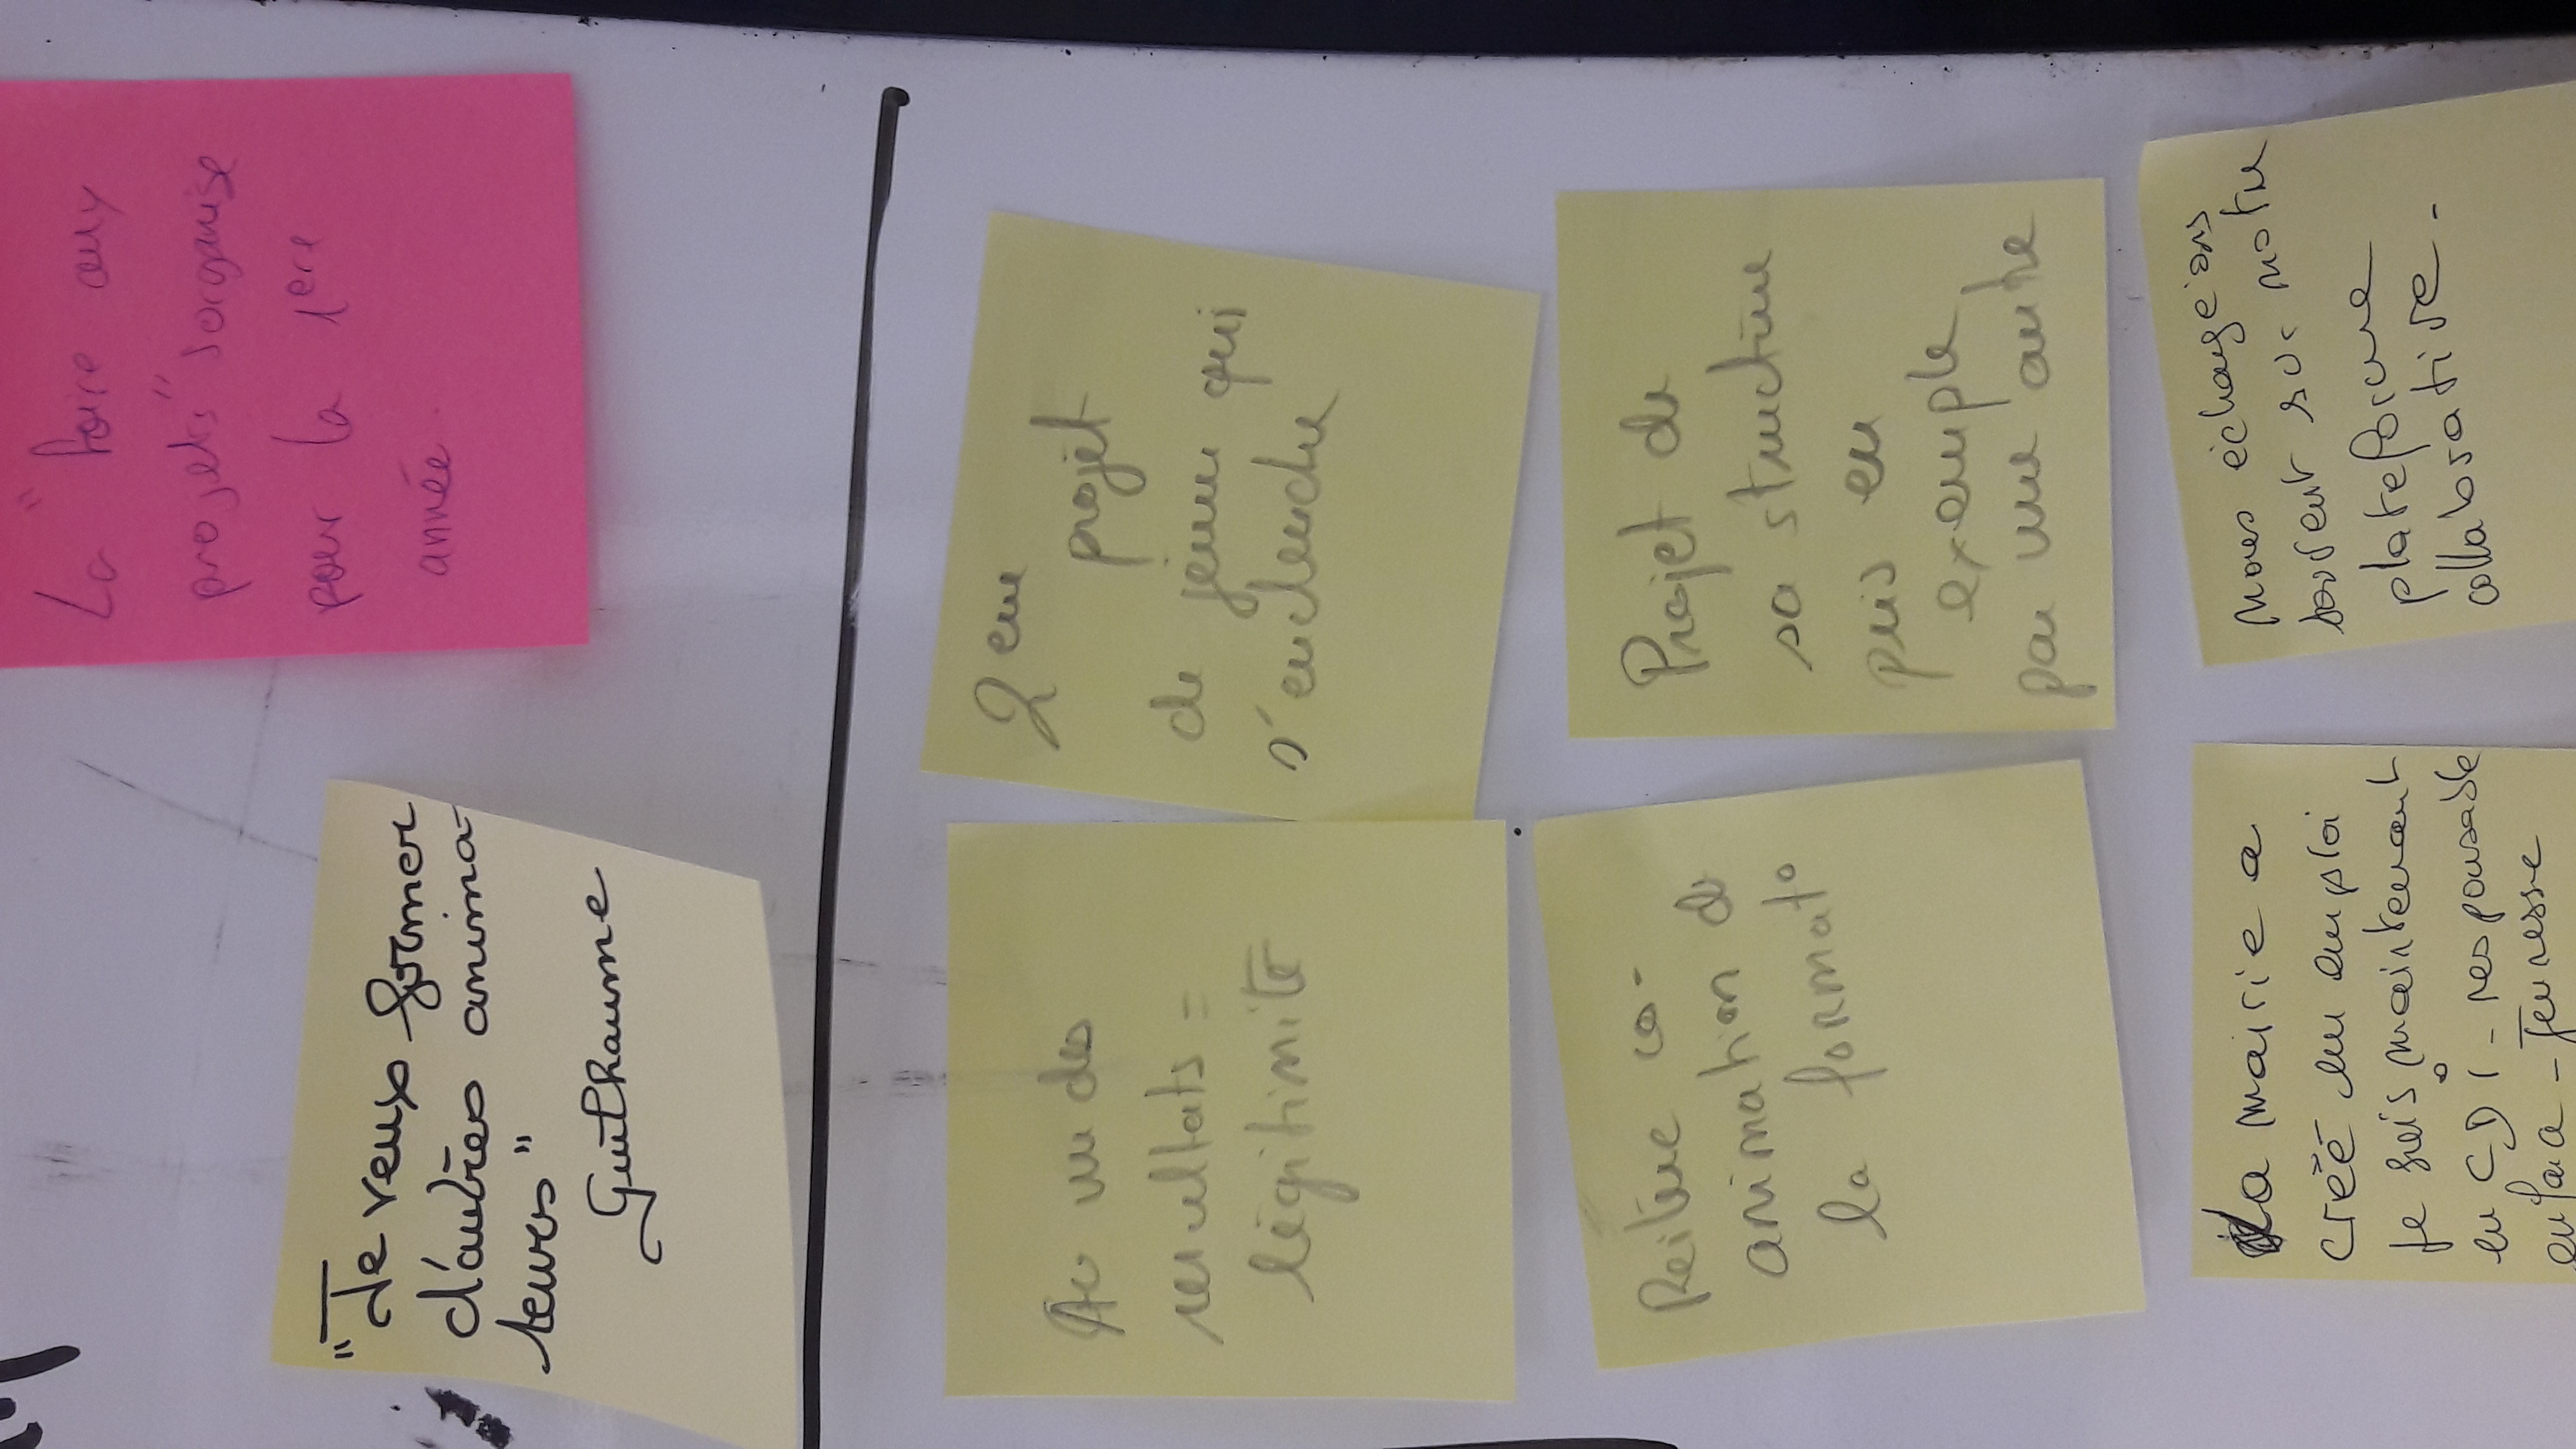 La "foire aux
projets" s'organise
pour la 1ere
année.
"Je veux former
d'autres anima-
teurs"
Guilhaume
Au vu des
resultats =
légitimité
2eme
projet
de jeune qui
s'enclenche
Reitère co-
animation de
la format°
Projet de
sa structure
pris en
exemple
par une autre
La mairie a
créé un emploi
Je suis maintenant
en CDI - responsable
enfance - Jeunesse
Nous échangeons
souvent sur notre
plateforme
collaborative -